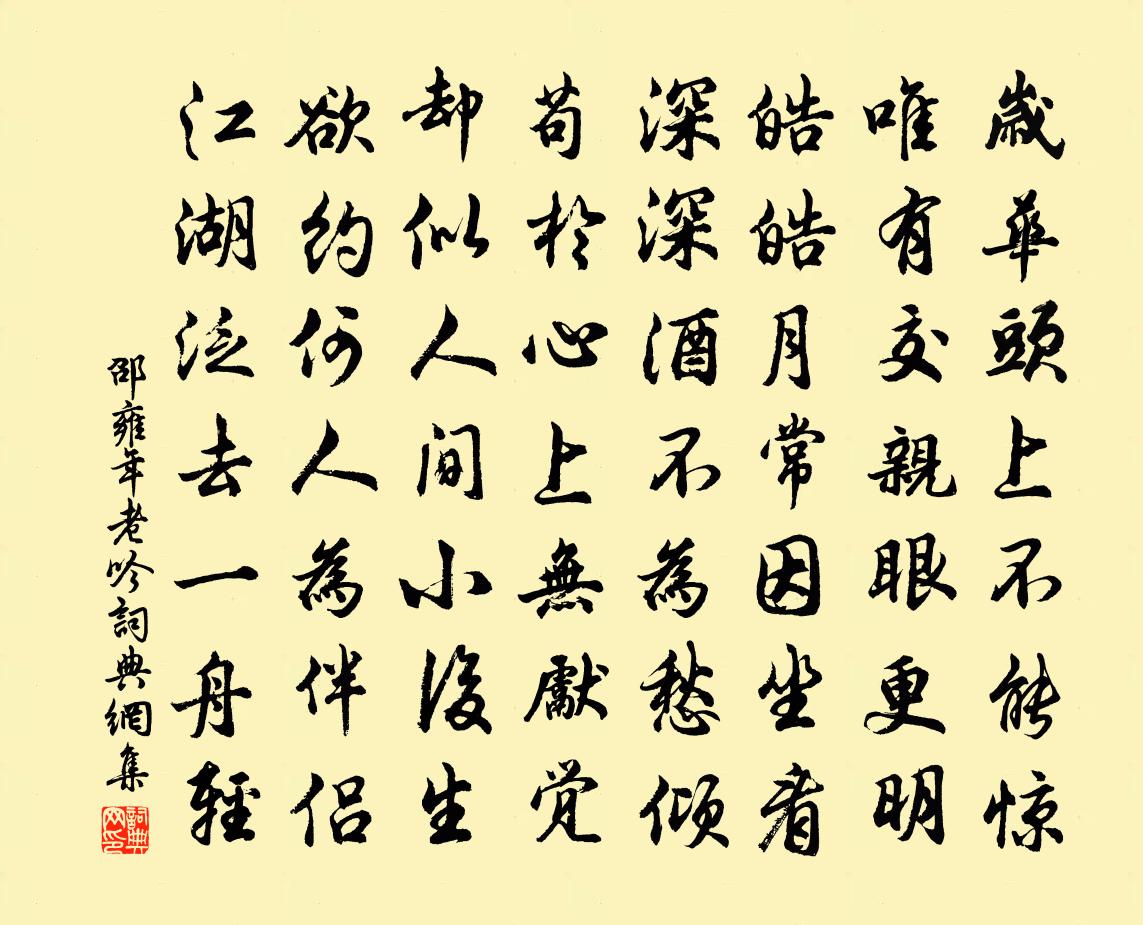 歲華頭上不能惊
唯有交親眼更明
皓皓月常因坐看
深深酒不為愁傾
苟於心上無獻覚
却似人間小後生
欲約何人為伴侶
江湖泛去一舟輕
邵雍年老吟詞典網集
詞典網印